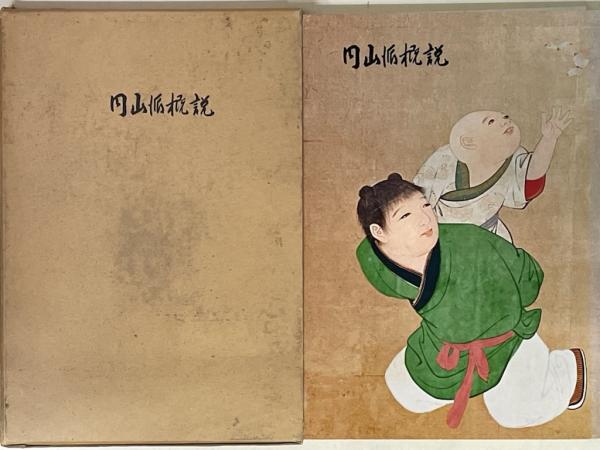 円山派概説
円山派概説